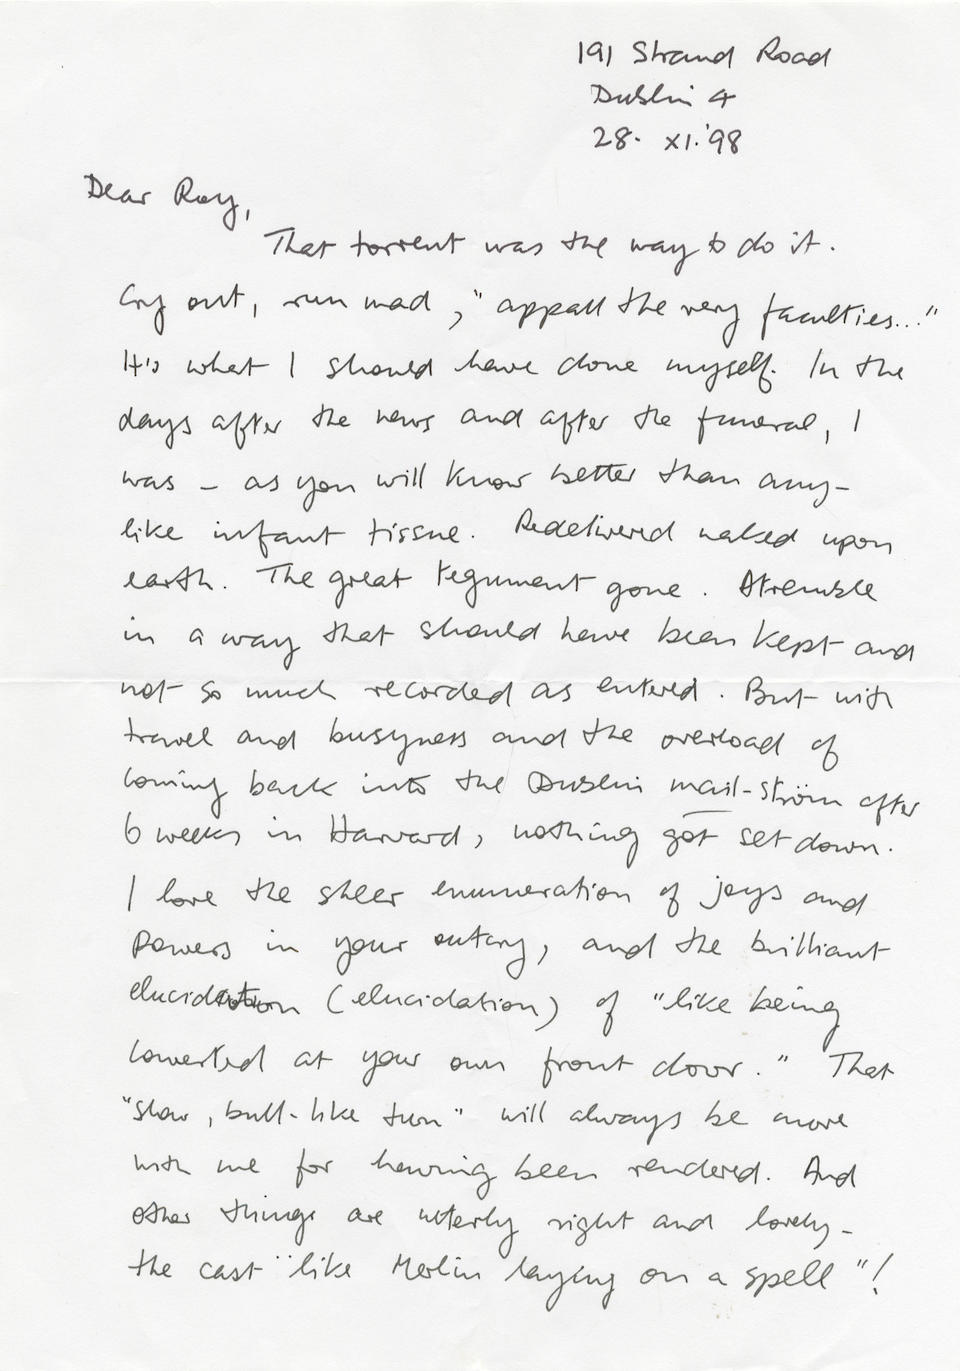 191 Strand Road
Dublin 4
28. XI. '98
Dear Roy,
That torrent was the way to do it.
Cry out, run mad, "appall the very faculties..."
It's what I should have done myself. In the
days after the news and after the funeral, I
was – as you will know better than any –
like infant tissue. Redelivered naked upon
earth. The great tegument gone. Atremble
in a way that should have been kept and
not so much recorded as entered. But with
travel and busyness and the overload of
coming back into the Dublin mail-ström after
6 weeks in Harvard, nothing got set down.
I love the sheer enumeration of joys and
powers in your outcry, and the brilliant
elucidation (elucidation) of "like being
at your own front door." That
"slow, bull-like turn" will always be more
with me for having been rendered. And
other things are utterly right and lovely –
the cast "like Merlin laying on a spell"!